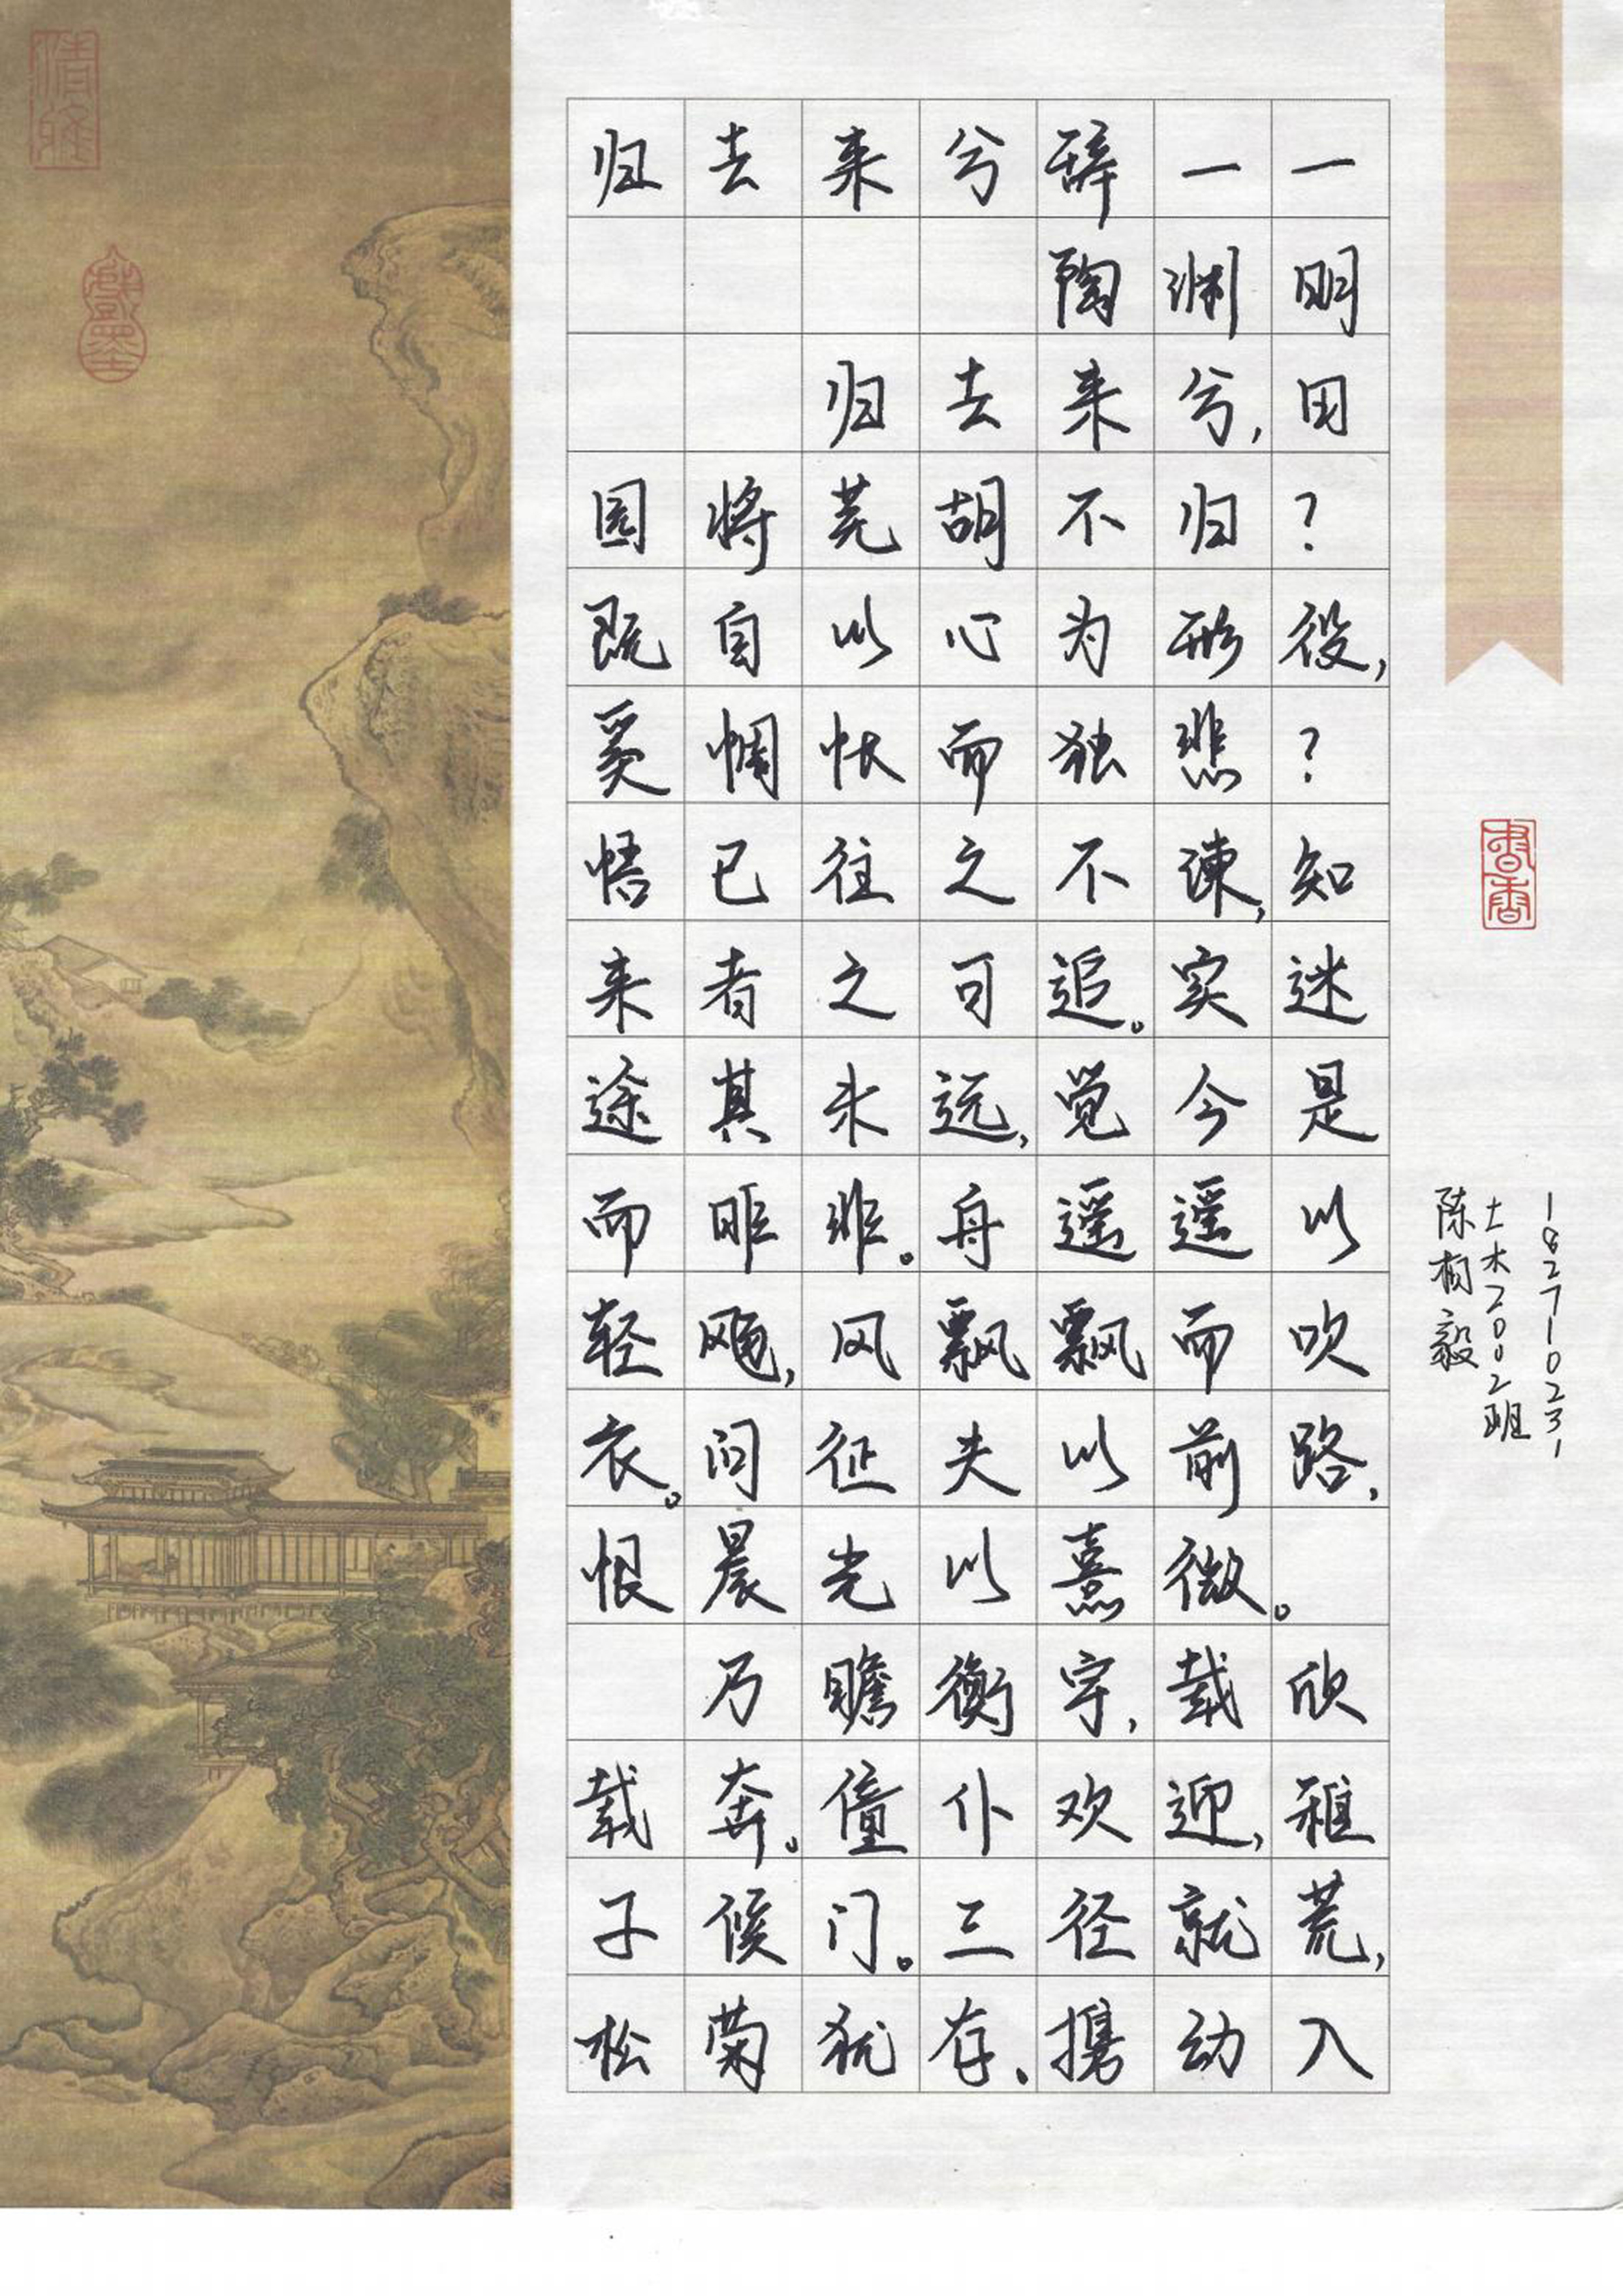 归去来兮辞一一
陶渊明
归去来兮,田
园将芜胡不归?
既自以心为形役,
奚惆怅而独悲?
悟已往之不谏,知
来者之可追。实迷
途其未远,觉今是
而昨非。舟遥遥以
轻飏,风飘飘而吹
衣。问征夫以前路,
恨晨光以熹微。
乃瞻衡宇,载欣
载奔。僮仆欢迎,稚
子候门。三径就荒,
松菊犹存、携幼入
書香
182710231
土木2002班
清雅